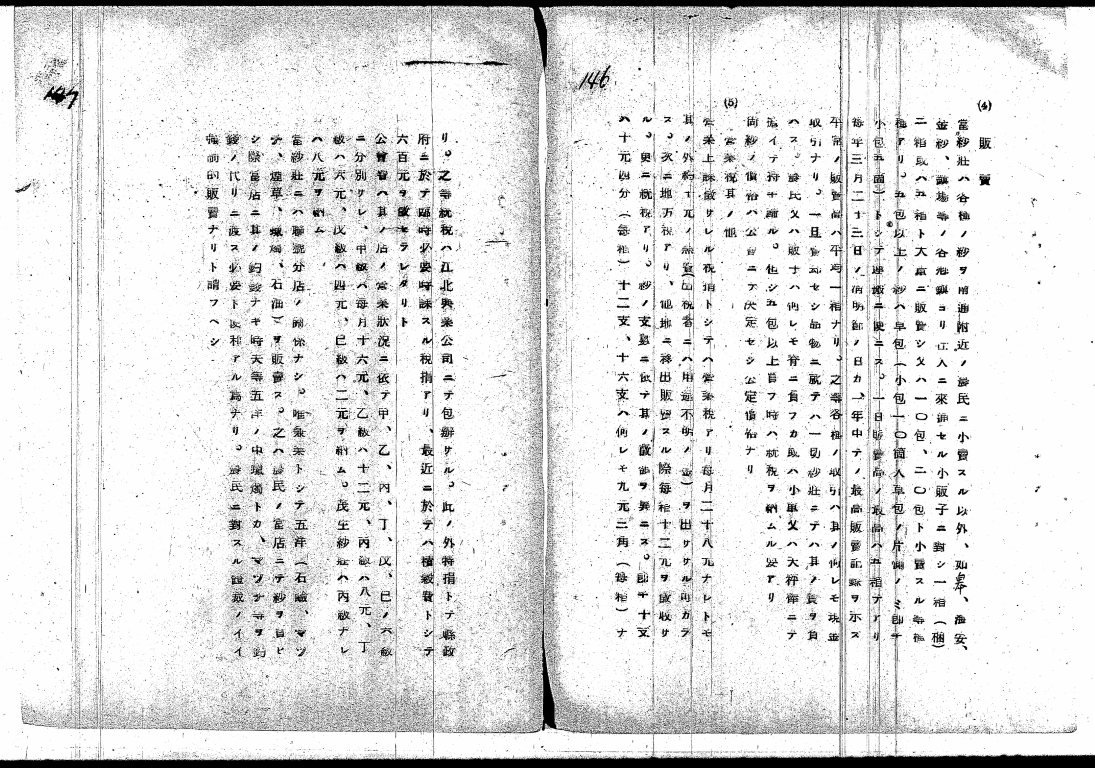 146
(4) 販賣
當紗莊ハ各種ノ紗ヲ南通附近ノ農民ニ小賣スル以外、如皐、海安、
金沙、等ノ各ヨリ仕入ニ來ル小販子ニ對シ一相(梱)
二相或ハ五相ト大ニ販賣シ又ハ一〇包、二〇包ト小賣スル等種
種アリ。五包以上ノ紗ハ草包(小包一〇箇入草包ノ片側ノミ即チ
小包五箇)トシテ運搬ニ便ニス。一日販賣高ノ最高ハ五相テアリ
每年三月二十三日ノ淸明節ノ日カ一年中テノ最高販賣記錄ヲ示ス
平常ノ販賣高ハ平均一相ナリ。之等各種ノ取引ハ其ノ何レモ現金
取引ナリ。一旦賣却セシ品物ニ就テハ一切紗莊ニテハ其ノ責ヲ負
ハス。農民又ハ販子ハ何レモ脊ニ負フカ或ハ小車又ハ天秤棒ニテ
擔イテ持チ歸ル。但シ五包以上買フ時ハ統稅ヲ納ムル要アリ
尙紗ノ價格ハ公會ニテ決定セシ公定價格ナリ
(5) 營業稅其ノ他
營業上課徵サレル稅捐トシテハ營業稅アリ每月二十八元ナレトモ
其ノ外約十元ノ(用途不明ノ金)ヲ出ササル可カラ
ス。次ニ地方稅アリ、他地ニ移出販賣スル際每相十二元ヲ徵收サ
ル。更ニ統稅アリ。紗ノ支數ニ依テ其ノ徵ヲ異ニス。即チ十支
八十元四分(每相)十二支、十六支ハ何レモ九元二角(每相)ナ
147
リ。之等統稅ハ江北興業公司ニテ包辦サル。此ノ外特捐トテ縣政
府ニ於テ臨時必要時課スル稅捐アリ、最近ニ於テハ積穀費トシテ
六百元ヲ徵セラレタリト
公會費ハ其ノ店ノ營業狀況ニ依テ甲、乙、丙、丁、戊、己ノ六級
ニ分別サレ、甲級ハ每月十六元、乙級ハ十二元、丙級ハ八元、丁
級ハ六元、戊級ハ四元、己級ハ二元ヲ納ム。茂生紗莊ハ丙級ナレ
ハ八元ヲ納ム
當紗莊ニハ聯號分店ノ關係ナシ。唯兼業トシテ五洋(石鹼、マツ
チ、煙草、蠟燭、石油)ヲ販賣ス。之ハ農民ノ當店ニテ紗ヲ買ヒ
シ際當店ニ其ノ釣錢ナキ時天等五洋ノ中蠟燭トカ、マツチ等ヲ釣
錢ノ代リニ渡ス必要ト便利アル爲ナリ。農民ニ對スル體裁ノイイ
強制的販賣ナリト謂フヘシ